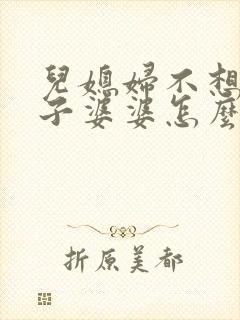 兒媳婦不想
子婆婆怎麼
折原美都